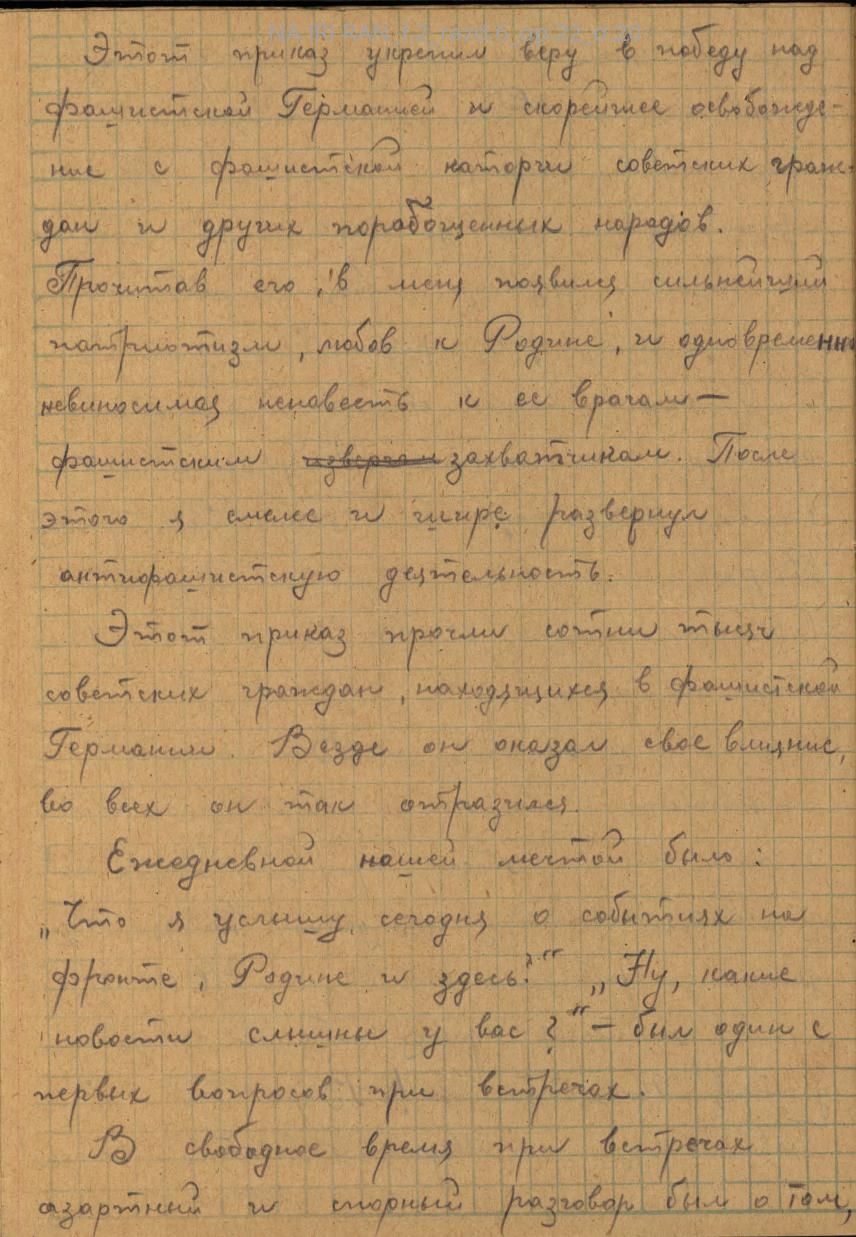 Этот приказ укрепил веру в победу над
фашистской Германией и скорейшее освобожде-
ние с фашистской каторги советских граж-
дан и других порабощенных народов.
Прочитав его, в меня появился сильнейший
патриотизм, любов к Родине, и одновременно
невиносимая ненавесть к ее врагам —
фашистским извергам захватчикам. После
этого я смелее и шире развернул
антифашистскую деятельность.
Этот приказ прочли сотни тысяч
советских граждан, находящихся в фашистской
Германии. Везде он оказал свое влияние,
во всех он так отразился.
Ежедневной нашей мечтой было:
„Что я услышу сегодня о событиях на
фронте, Родине и здесь?“ „Ну, какие
новости слышны у вас?“ — был один с
первых вопросов при встречах.
В свободное время при встречах
азартный и спорный разговор был о том,